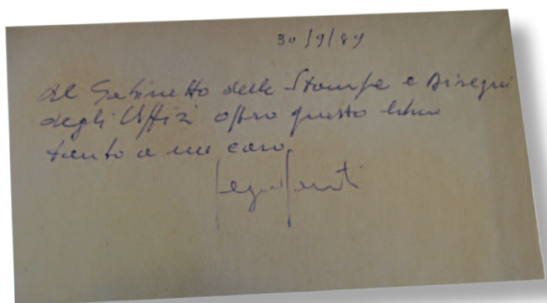 30/9/89
al Gabinetto delle Stampe e Disegni
degli Uffizi offro questo libro
tanto a me caro.